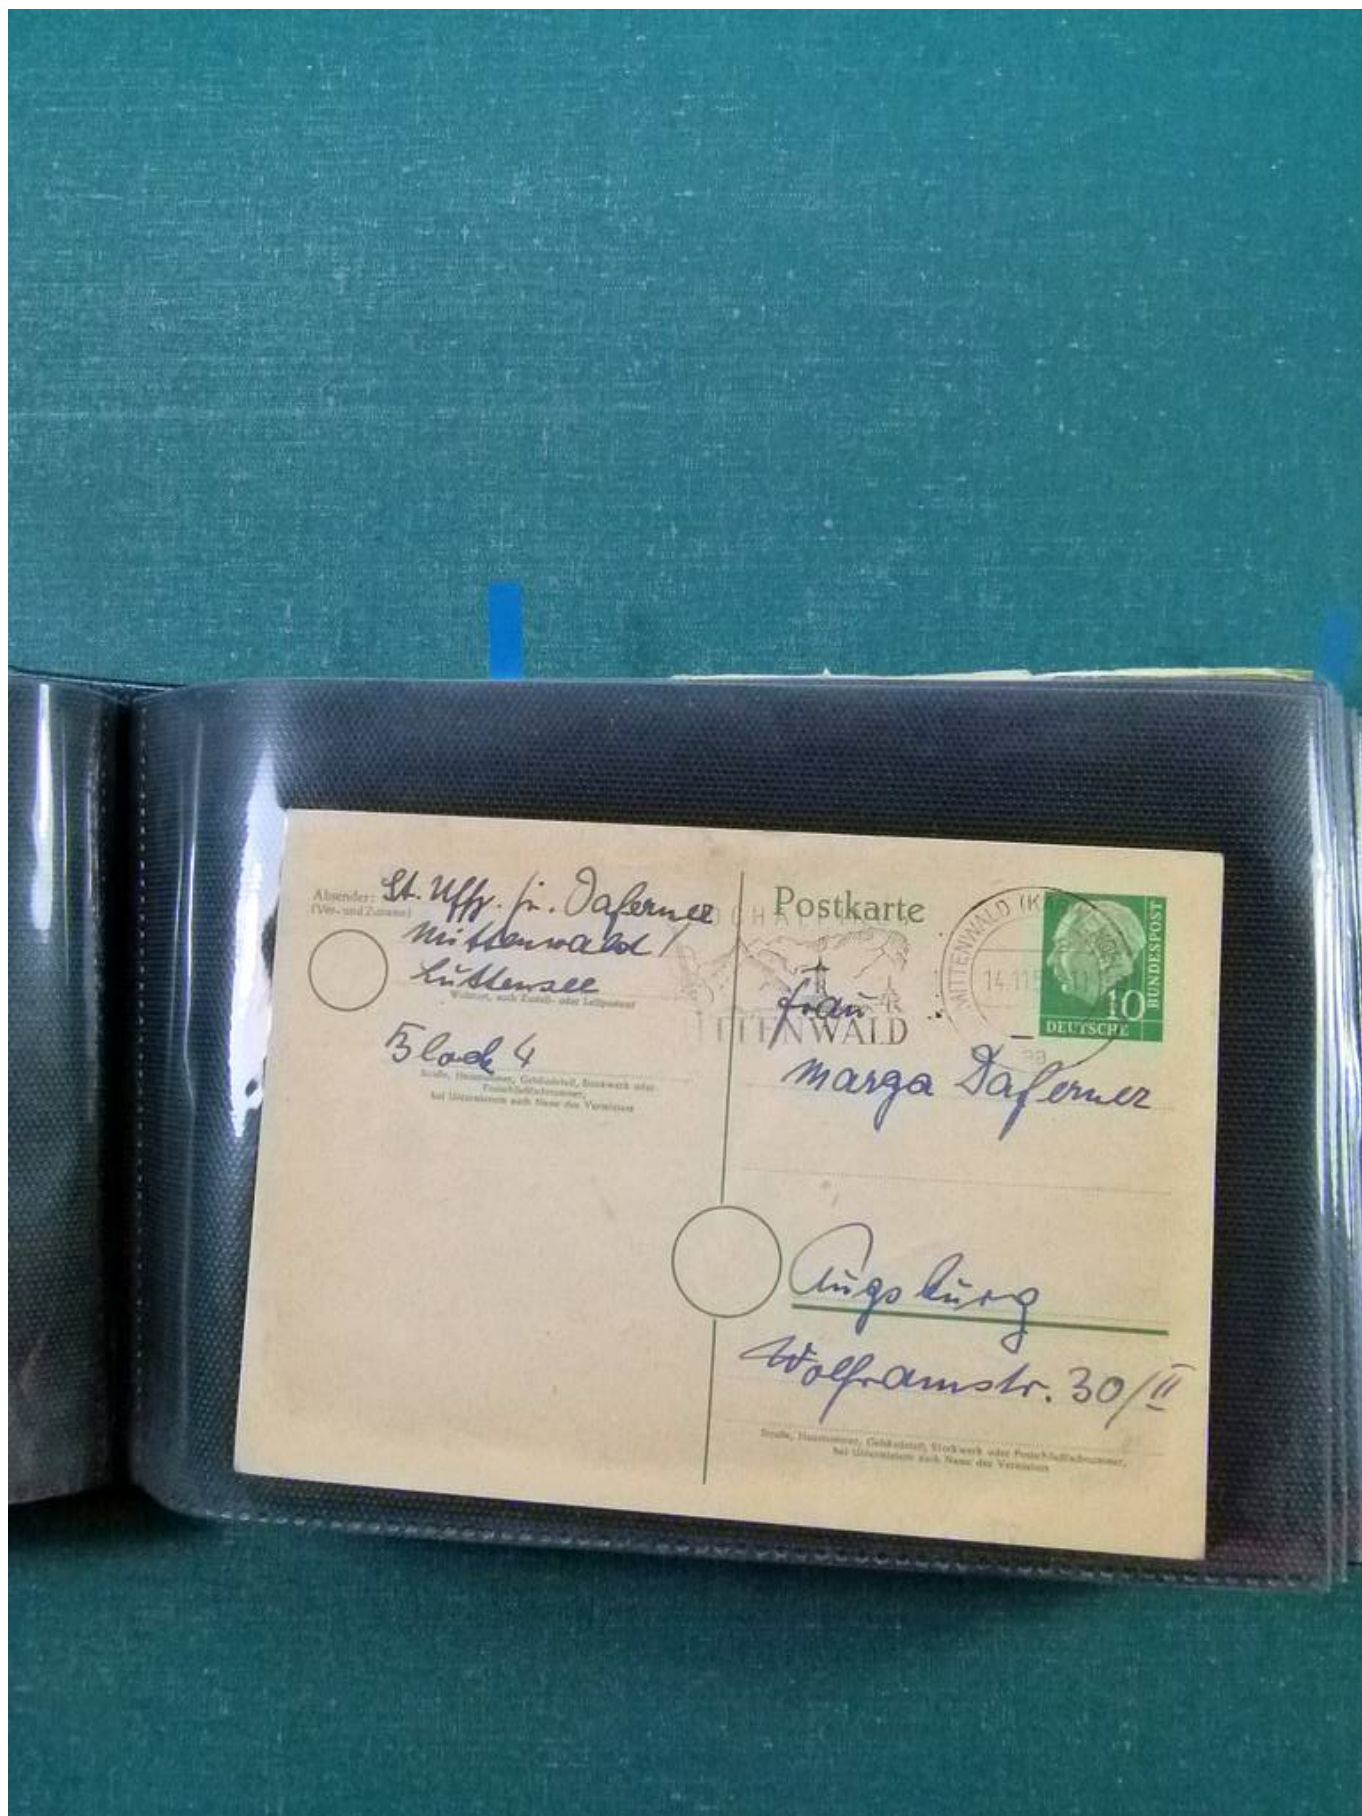 Absender:
(Vor- und Zuname)
St. Uffz. Daferner
Mittenwald /
Luttensee
Wohnort, auch Zustell- oder Leitpostamt
Block 4
Straße, Hausnummer, Gebäudeteil, Stockwerk oder
Postschließfachnummer,
bei Untermietern auch Name des Vermieters
Postkarte
MITTENWALD
14.11.5
aa
10
DEUTSCHE
BUNDESPOST
Frau
Marga Daferner
Augsburg
Wolframstr. 30/II
Straße, Hausnummer, Gebäudeteil, Stockwerk oder Postschließfachnummer,
bei Untermietern auch Name des Vermieters